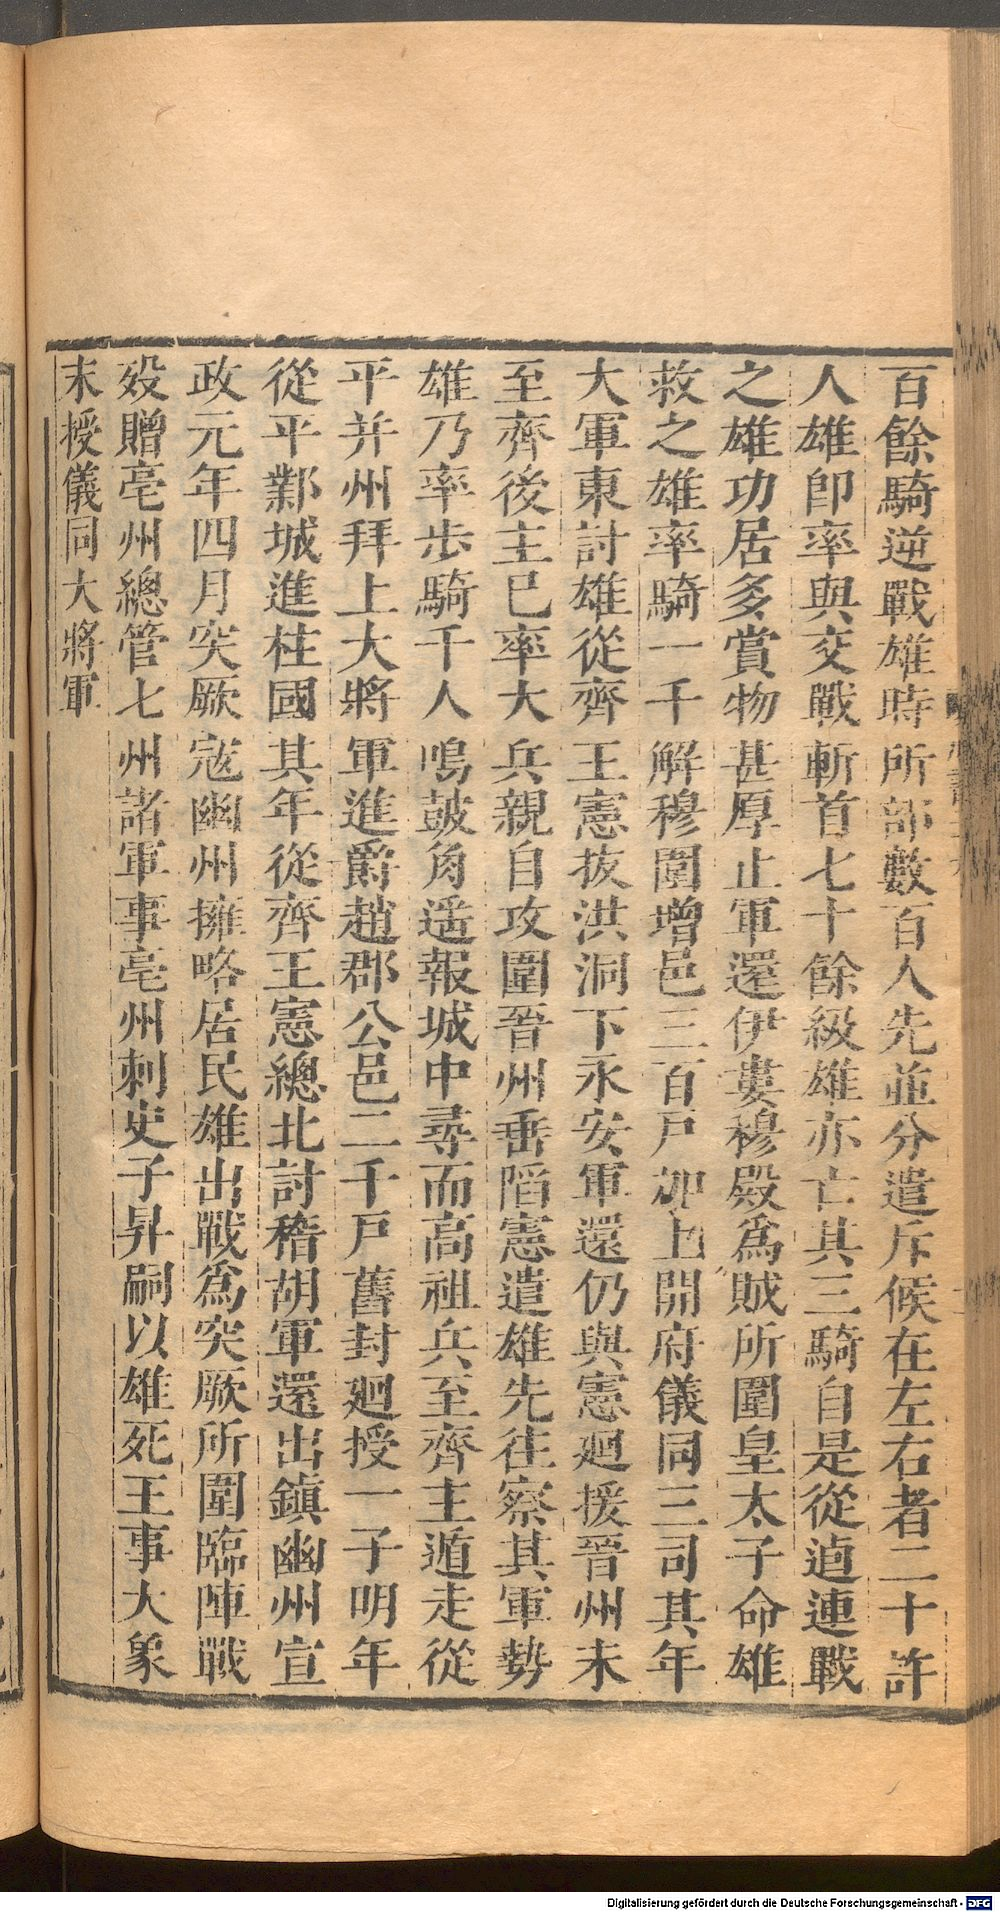 百餘騎逆戰雄時所部數百人先並分遣斥候在左右者二十許
人雄卽率與交戰斬首七十餘級雄亦亡其三騎自是從逌連戰
之雄功居多賞物甚厚止軍還伊婁穆殿爲賊所圍皇太子命雄
救之雄率騎一千解穆圍增邑三百戸加上開府儀同三司其年
大軍東討雄從齊王憲抜洪洞下永安軍還仍與憲廻援晉州未
至齊後主已率大兵親自攻圍晉州垂䧟憲遣雄先往察其軍勢
雄乃率歩騎千人鳴鼓角遥報城中尋而高祖兵至齊主遁走從
平并州拜上大將軍進爵趙郡公邑二千戸舊封廻授一子明年
從平鄴城進柱國其年從齊王憲總北討稽胡軍還出鎮幽州宣
政元年四月突厥宼幽州擁略居民雄出戰爲突厥所圍臨陣戰
歿贈亳州總管七州諸軍事亳州刺史子昇嗣以雄死王事大象
末授儀同大將軍
Digitalisierung gefördert durch die Deutsche Forschungsgemeinschaft - DFG